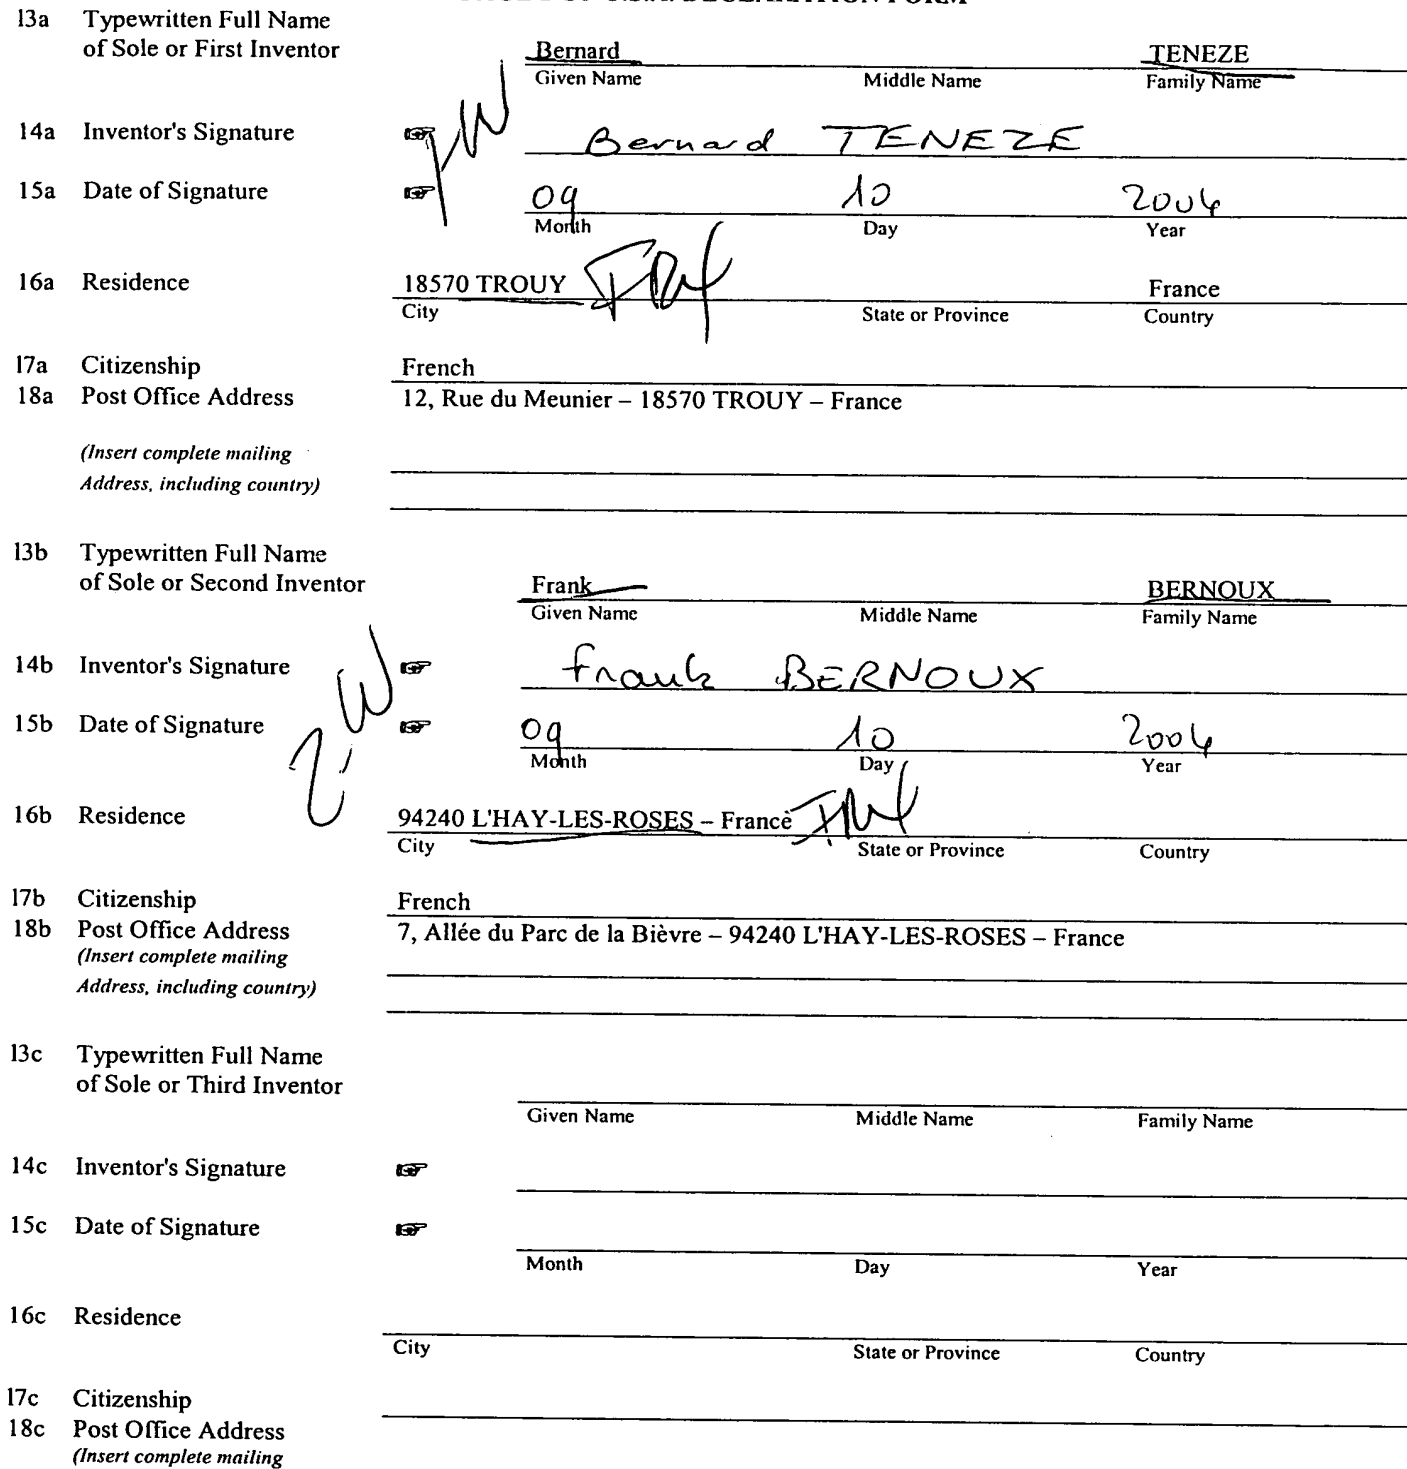 13a Typewritten Full Name
of Sole or First Inventor
Bernard TENEZE
Given Name Middle Name Family Name
1-W
14a Inventor's Signature Bernard TENEZE
15a Date of Signature 09 10 2004
Month Day Year
16a Residence 18570 TROUY FRX France
City State or Province Country
17a Citizenship French
18a Post Office Address 12, Rue du Meunier – 18570 TROUY – France
(Insert complete mailing
Address, including country)
13b Typewritten Full Name
of Sole or Second Inventor
Frank BERNOUX
Given Name Middle Name Family Name
2-W
14b Inventor's Signature Frank BERNOUX
15b Date of Signature 09 10 2004
Month Day Year
16b Residence 94240 L'HAY-LES-ROSES – France FRX
City State or Province Country
17b Citizenship French
18b Post Office Address 7, Allée du Parc de la Bièvre – 94240 L'HAY-LES-ROSES – France
(Insert complete mailing
Address, including country)
13c Typewritten Full Name
of Sole or Third Inventor
Given Name Middle Name Family Name
14c Inventor's Signature
15c Date of Signature
Month Day Year
16c Residence
City State or Province Country
17c Citizenship
18c Post Office Address
(Insert complete mailing